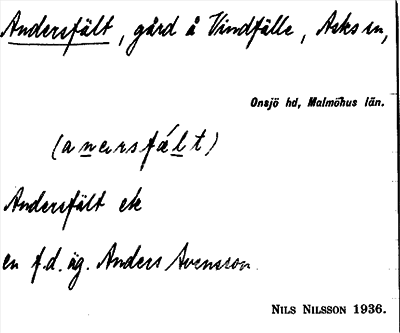 Andersfält, gård å Vindfälle, Asks sn,
Onsjö hd, Malmöhus län.
(anersfált)
Andersfält
en f.d. äg. Anders Svensson.
NILS NILSSON 1936.